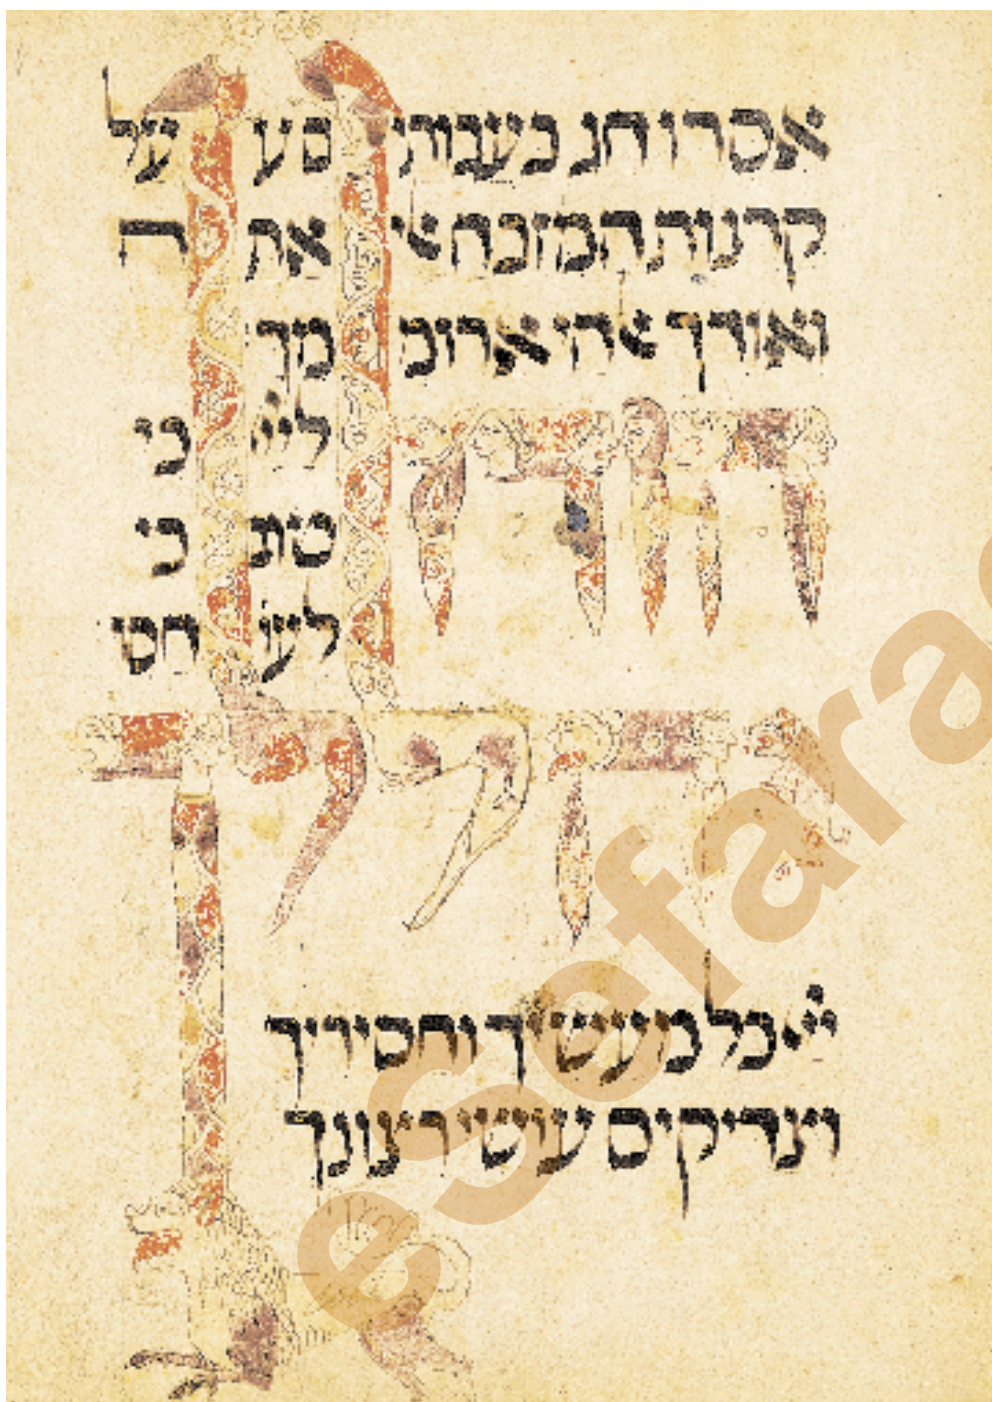 אסרו חג בעבותים ע על
קרנות המזבח אלי אתה
ואודך אלהי ארוממך
הודו ליי כי
טוב כי
לעו חסד
יהללוך
ייי כל מעשיך וחסידיך
וצדיקים עושי רצונך
eSefara